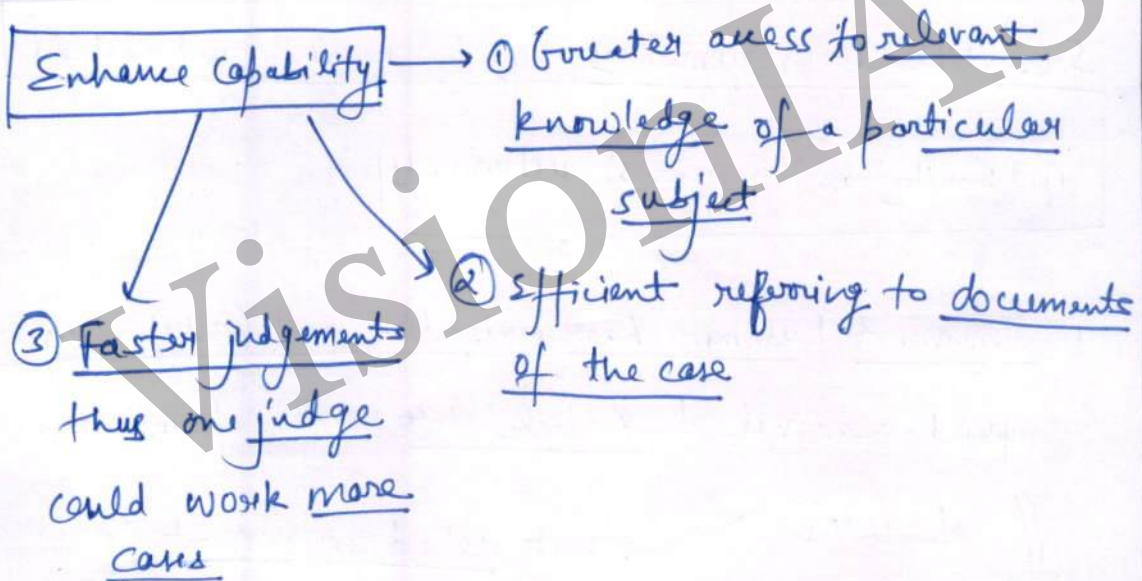 Enhance Capability → ① Greater access to relevant
knowledge of a particular
subject
② Efficient referring to documents
of the case
③ Faster judgements
thus one judge
could work more
cases
VisionIAS